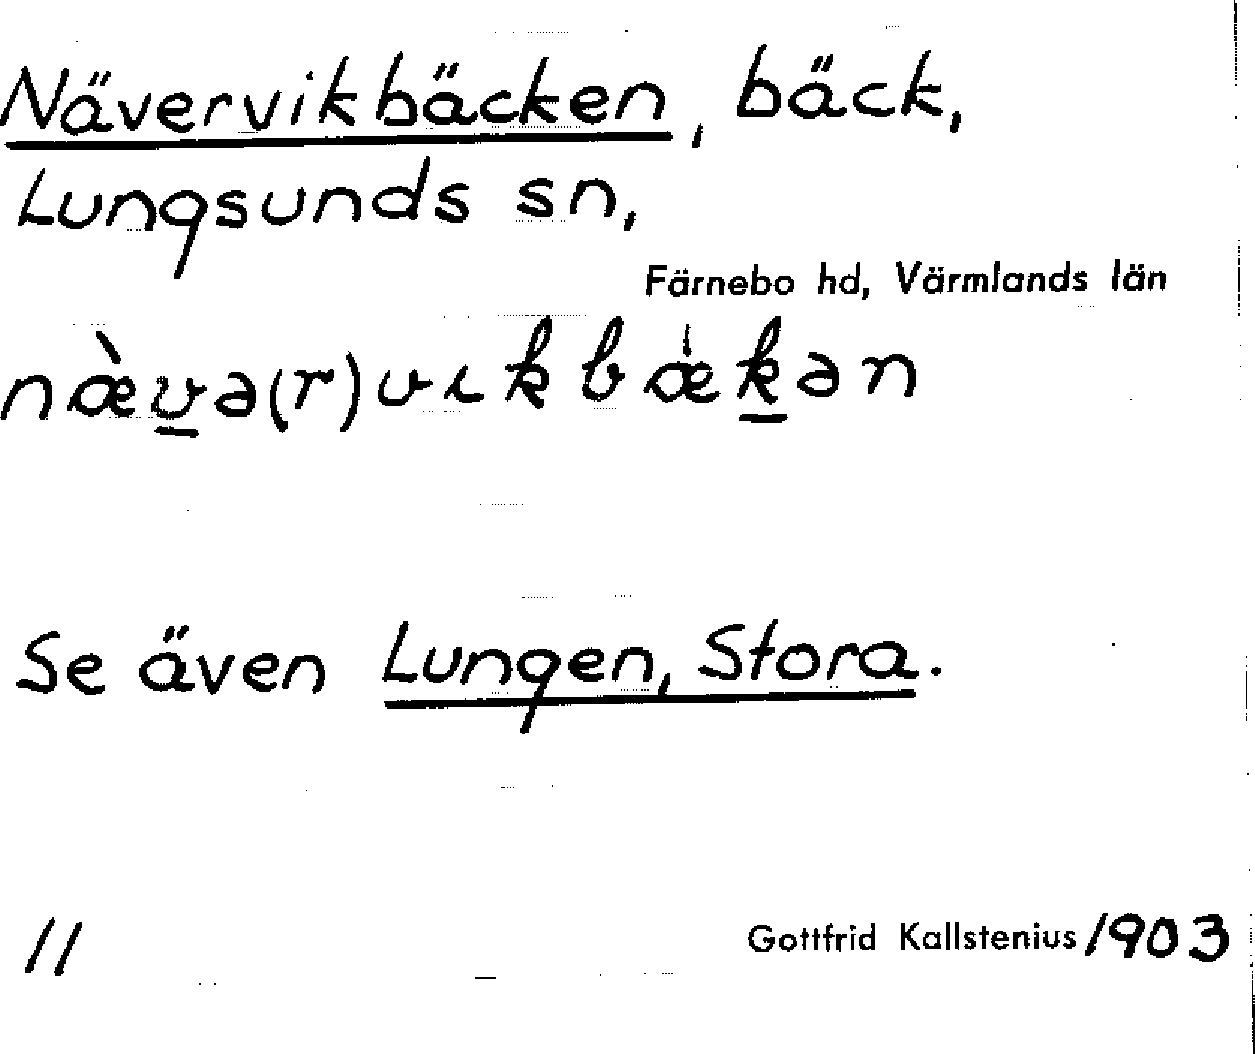 Nävervikbäcken, bäck,
Lungsunds sn,
Färnebo hd, Värmlands län
næ̀v̲ə(r)vıkbǽk̲ən
Se även Lungen, Stora.
11
Gottfrid Kallstenius 1903